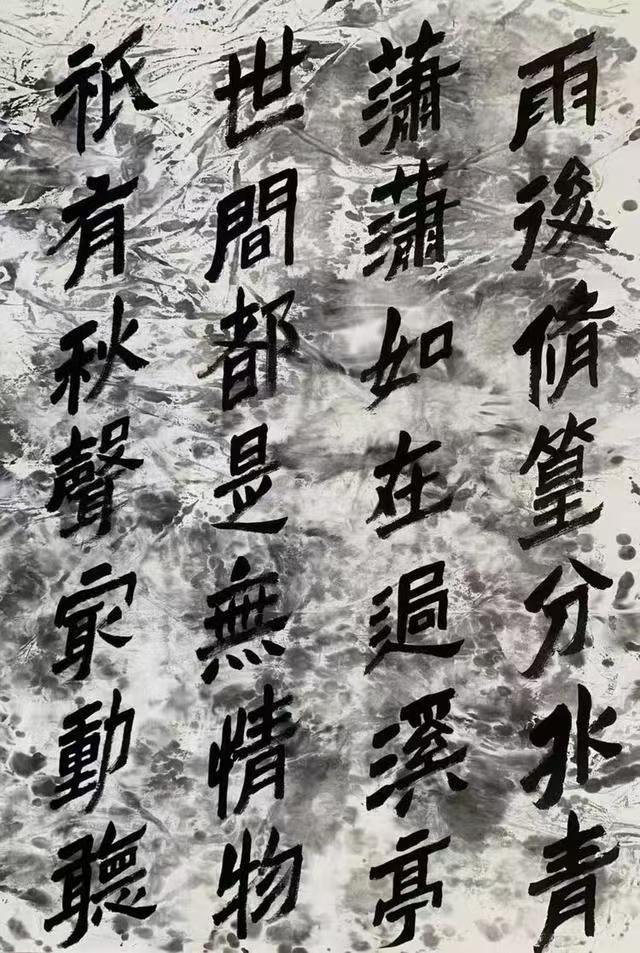 雨後脩篁分外青
蕭蕭如在過溪亭
世間都是無情物
祇有秋聲最動聽